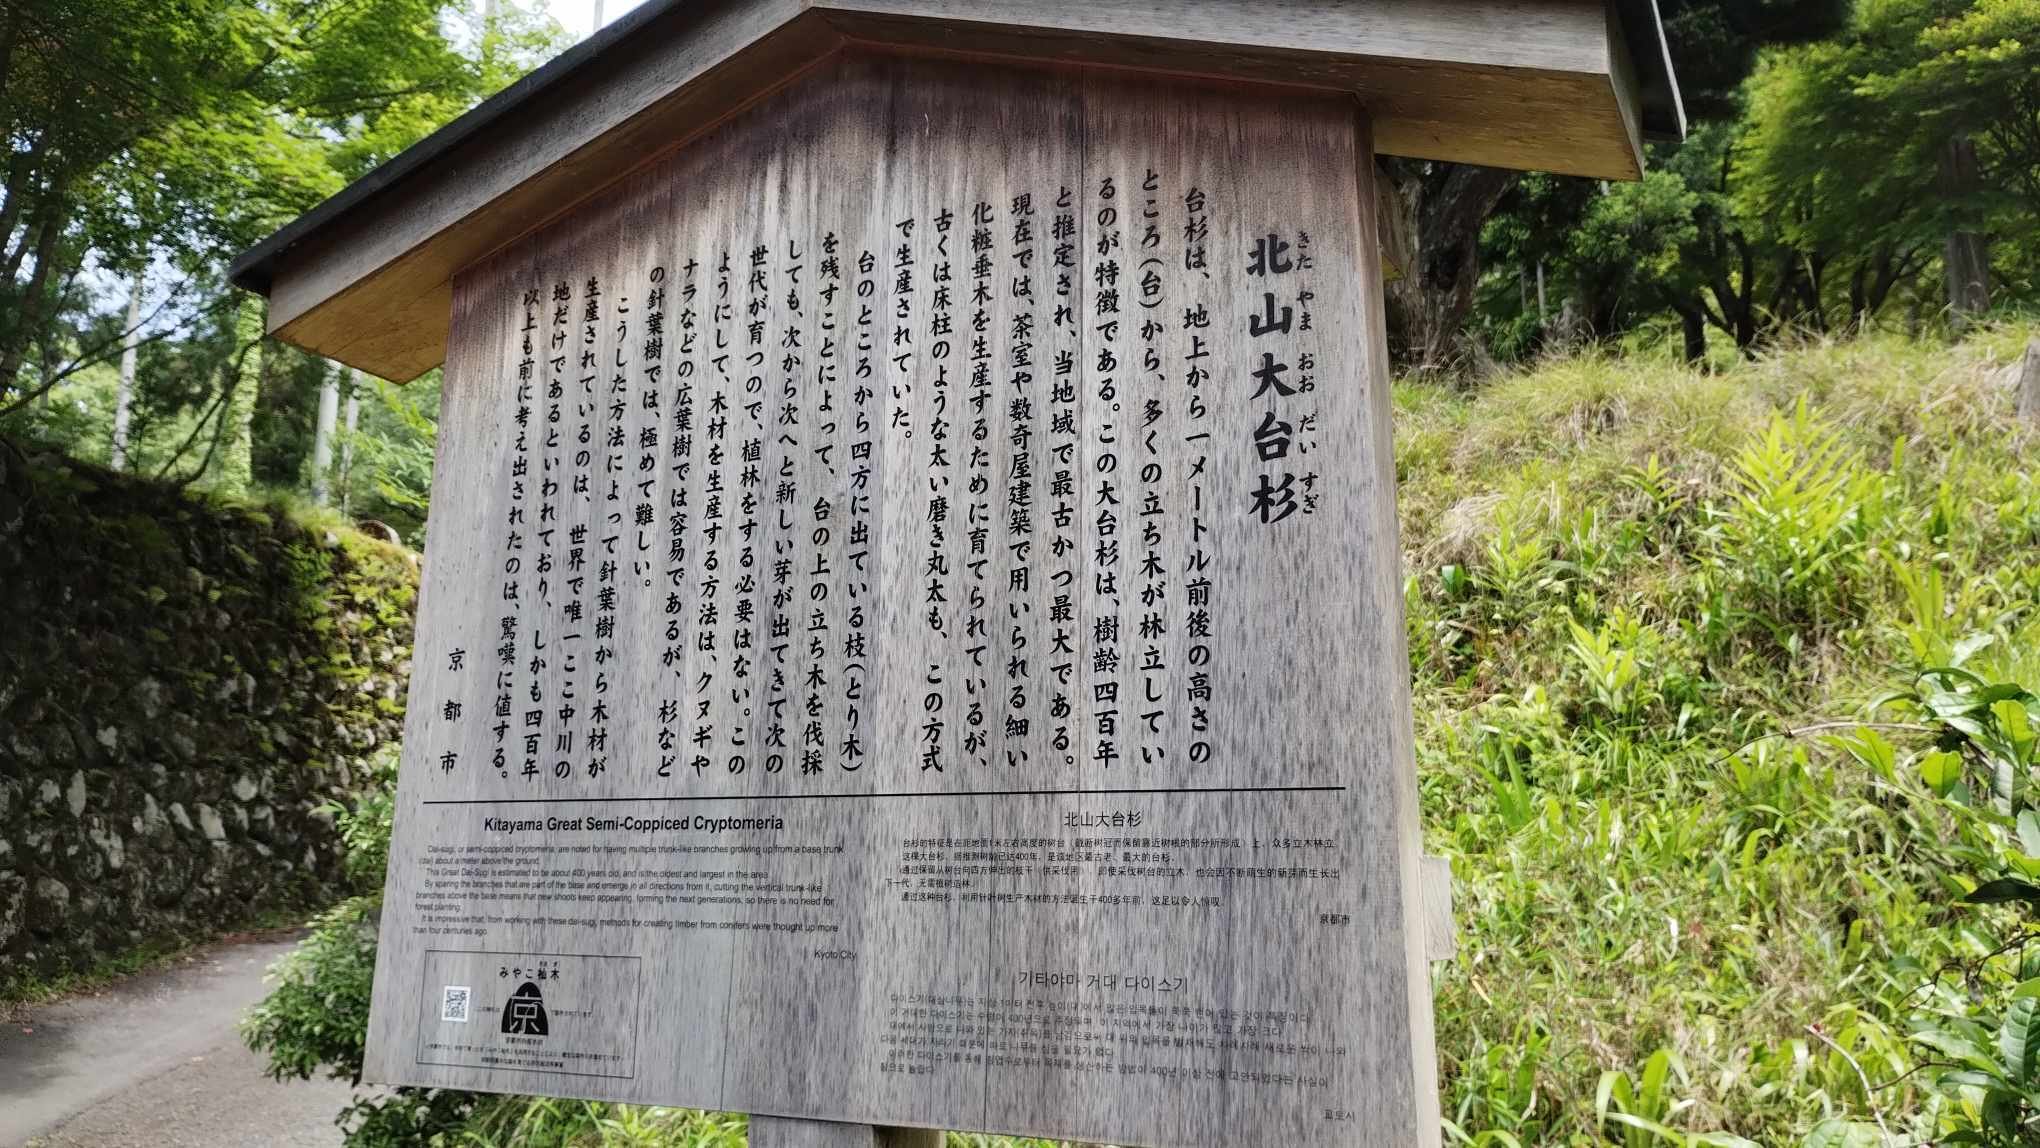 北山大台杉
きた やま おお だい すぎ
台杉は、地上から一メートル前後の高さの
ところ（台）から、多くの立ち木が林立してい
るのが特徴である。この大台杉は、樹齢四百年
と推定され、当地域で最古かつ最大である。
現在では、茶室や数奇屋建築で用いられる細い
化粧垂木を生産するために育てられているが、
古くは床柱のような太い磨き丸太も、この方式
で生産されていた。
台のところから四方に出ている枝（とり木）
を残すことによって、台の上の立ち木を伐採
しても、次から次へと新しい芽が出てきて次の
世代が育つので、植林をする必要はない。この
ようにして、木材を生産する方法は、クヌギや
ナラなどの広葉樹では容易であるが、杉など
の針葉樹では、極めて難しい。
こうした方法によって針葉樹から木材が
生産されているのは、世界で唯一ここ中川の
地だけであるといわれており、しかも四百年
以上も前に考え出されたのは、驚嘆に値する。
京都市
Kitayama Great Semi-Coppiced Cryptomeria
Dai-sugi, or semi-coppiced cryptomeria, are noted for having multiple trunk-like branches growing up from a base trunk
(dai) about a meter above the ground.
This Great Dai-Sugi is estimated to be about 400 years old, and is the oldest and largest in the area.
By sparing the branches that are part of the base and emerge in all directions from it, cutting the vertical trunk-like
branches above the base means that new shoots keep appearing, forming the next generations, so there is no need for
forest planting.
It is impressive that, from working with these dai-sugi, methods for creating timber from conifers were thought up more
than four centuries ago.
Kyoto City
北山大台杉
台杉的特征是在距地面1米左右高度的树台（截断树冠而保留靠近树根的部分所形成）上，众多立木林立。
这棵大台杉，据推测树龄已达400年，是该地区最古老、最大的台杉。
通过保留从树台向四方伸出的枝干（供采伐用），即使采伐树台的立木，也会因不断萌生的新芽而生长出
下一代，无需植树造林。
通过这种台杉，利用针叶树生产木材的方法诞生于400多年前，这足以令人惊叹。
京都市
기타야마 거대 다이스기
이 거대한 다이스기는 수령이 400년으로 추정되며, 이 지역에서 가장 나이가 많고 가장 크다.
다음 세대가 자라기 때문에 따로 나무를 심을 필요가 없다.
교토시
みやこ杣木
京